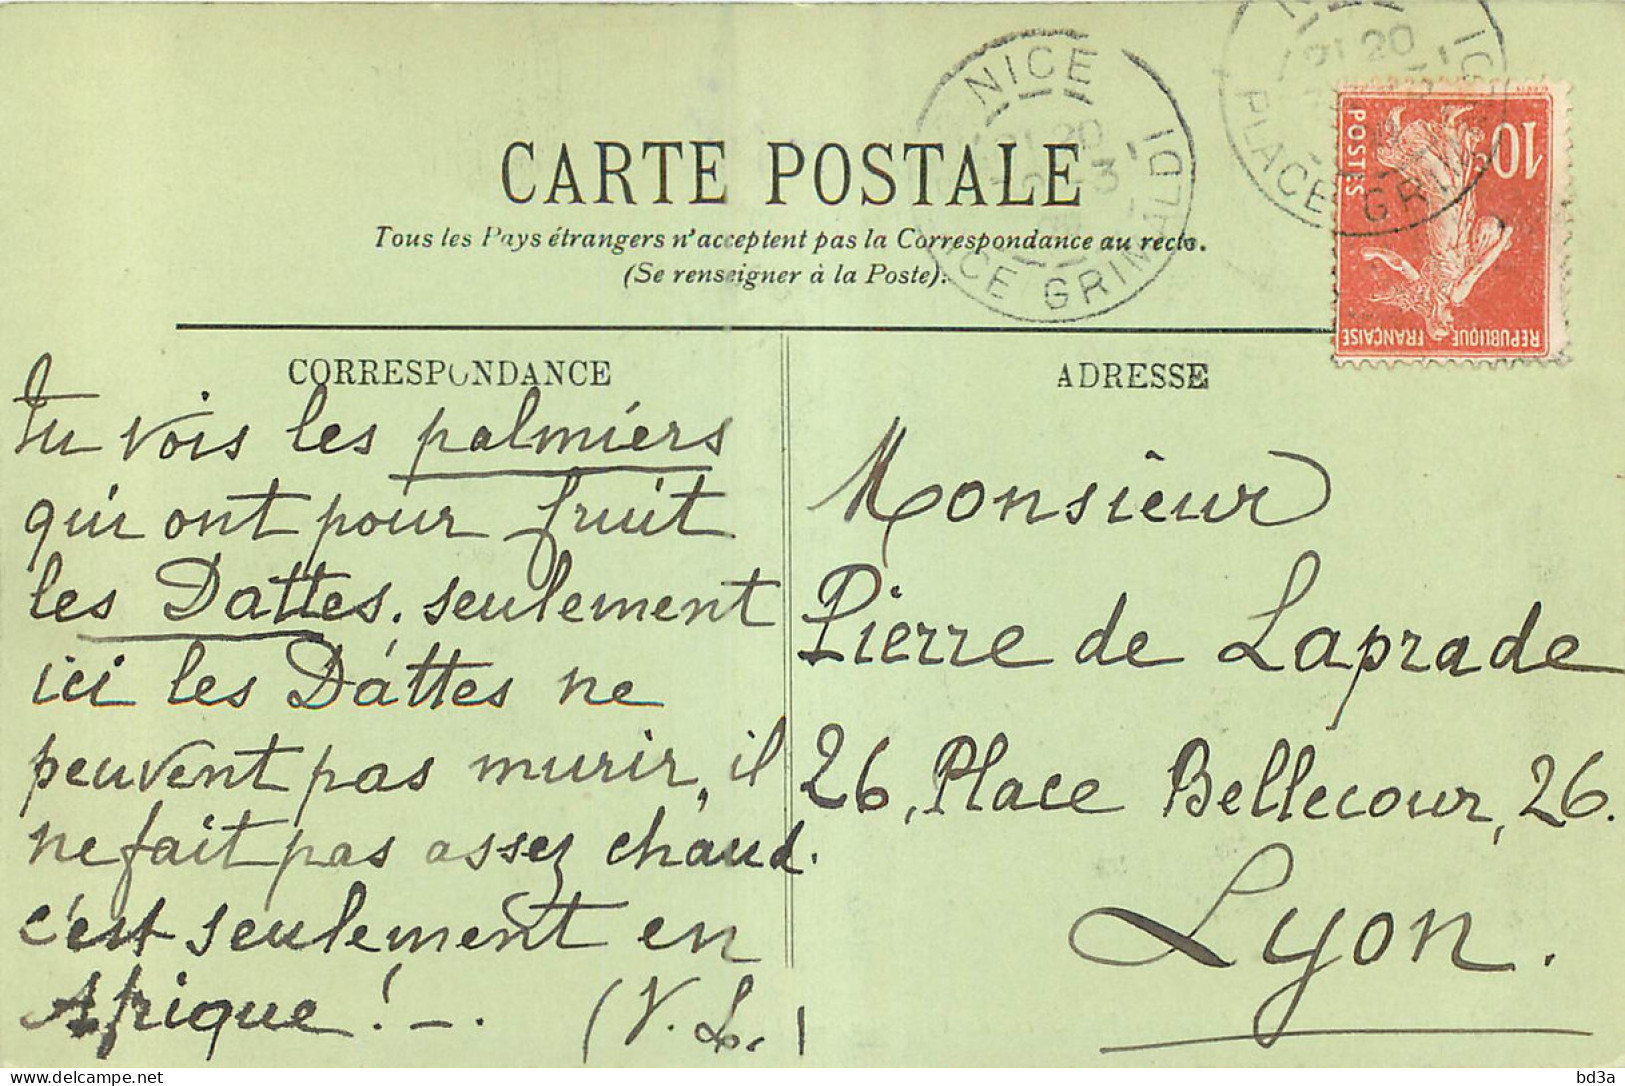 NICE
PLACE GRIMALDI
21 20
NICE
PLACE GRIMALDI
21 20
3
10
POSTES
REPUBLIQUE FRANÇAISE
CARTE POSTALE
Tous les Pays étrangers n'acceptent pas la Correspondance au recto.
(Se renseigner à la Poste).
CORRESPONDANCE
Tu vois les palmiers
qui ont pour fruit
les Dattes. seulement
ici les Dattes ne
peuvent pas murir, il
ne fait pas assez chaud.
c'est seulement en
Afrique ! _ .
(V. L.)
ADRESSE
Monsieur
Pierre de Laprade
26, Place Bellecour, 26.
Lyon.
bd3a